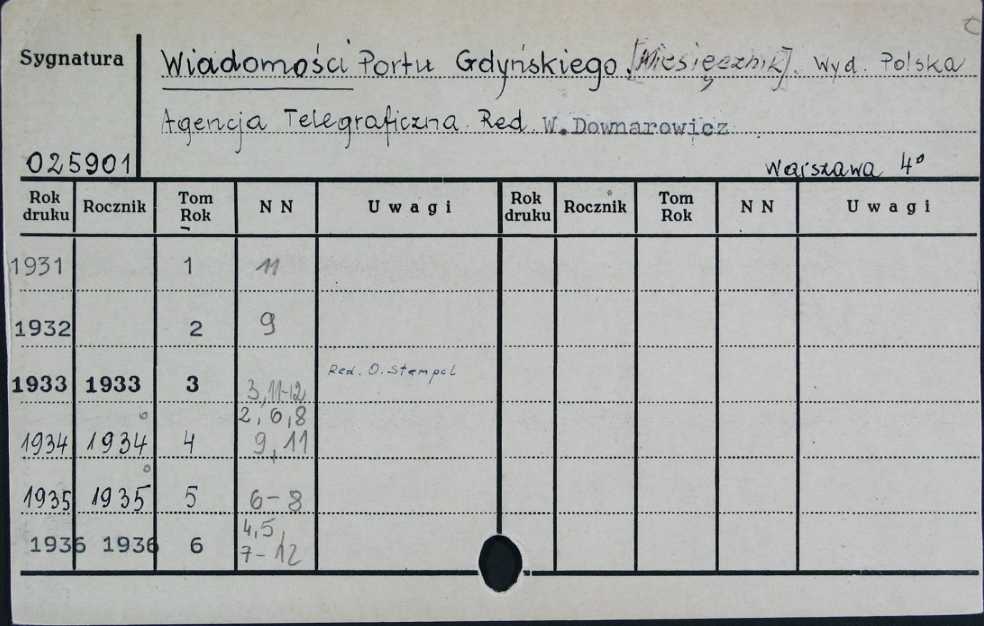 Sygnatura Wiadomości Portu Gdyńskiego. [Miesięcznik]. Wyd. Polska
Agencja Telegraficzna. Red. W. Downarowicz
025901 Warszawa 4°
Rok druku Rocznik Tom Rok N N Uwagi Rok druku Rocznik Tom Rok N N Uwagi
1931 1 11
1932 2 9
1933 1933 3 3, 11-12 Red. O. Stempol
1934 1934 4 2, 6, 8 9, 11
1935 1935 5 6-8
1936 1936 6 4, 5, 7-12